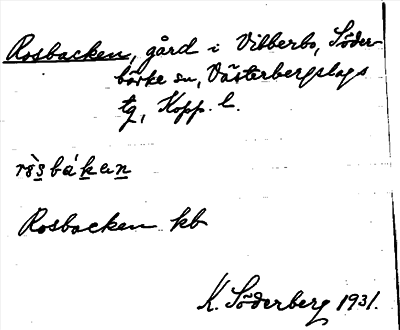 Rosbacken, gård i Vibberbo, Söder-
bärke sn, Västerbergslags
tg, Kopp. l.
rò̀s̲bák̲an̲
Rosbacken kb
K. Söderberg 1931.